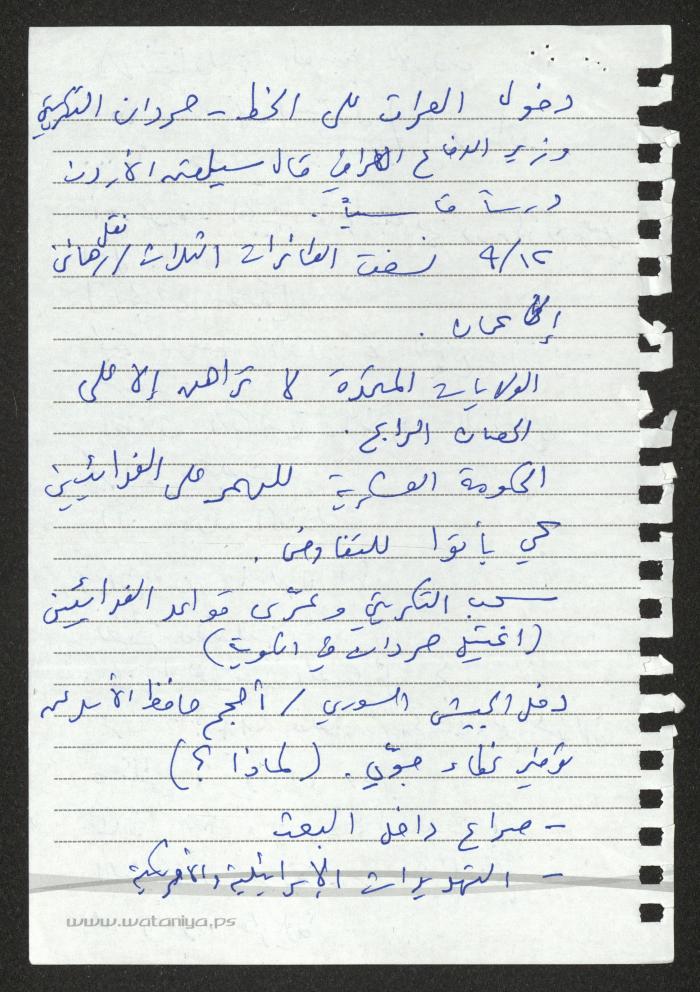 دخول العراق على الخط - حردان التكريتي
وزير الدفاع العراقي قال سيلقن الأردن
درساً قاسياً.
٩/١٢ نسفت الطائرات الثلاث / نقل رهائن
إلى عمان.
الولايات المتحدة لا تراهن إلا على
الحصان الرابح.
الحكومة العسكرية للـ على الفدائيين
كي يأتوا للتفاوض.
سحب التكريتي وعرّى قواعد الفدائيين
(اغتيل حردان في الكويت)
دخل الجيش السوري / أحجم حافظ الأسد عن
توفير غطاء جوّي. (لماذا؟)
- صراع داخل البعث
- التهديدات الإسرائيلية والأمريكية
www.wataniya.ps